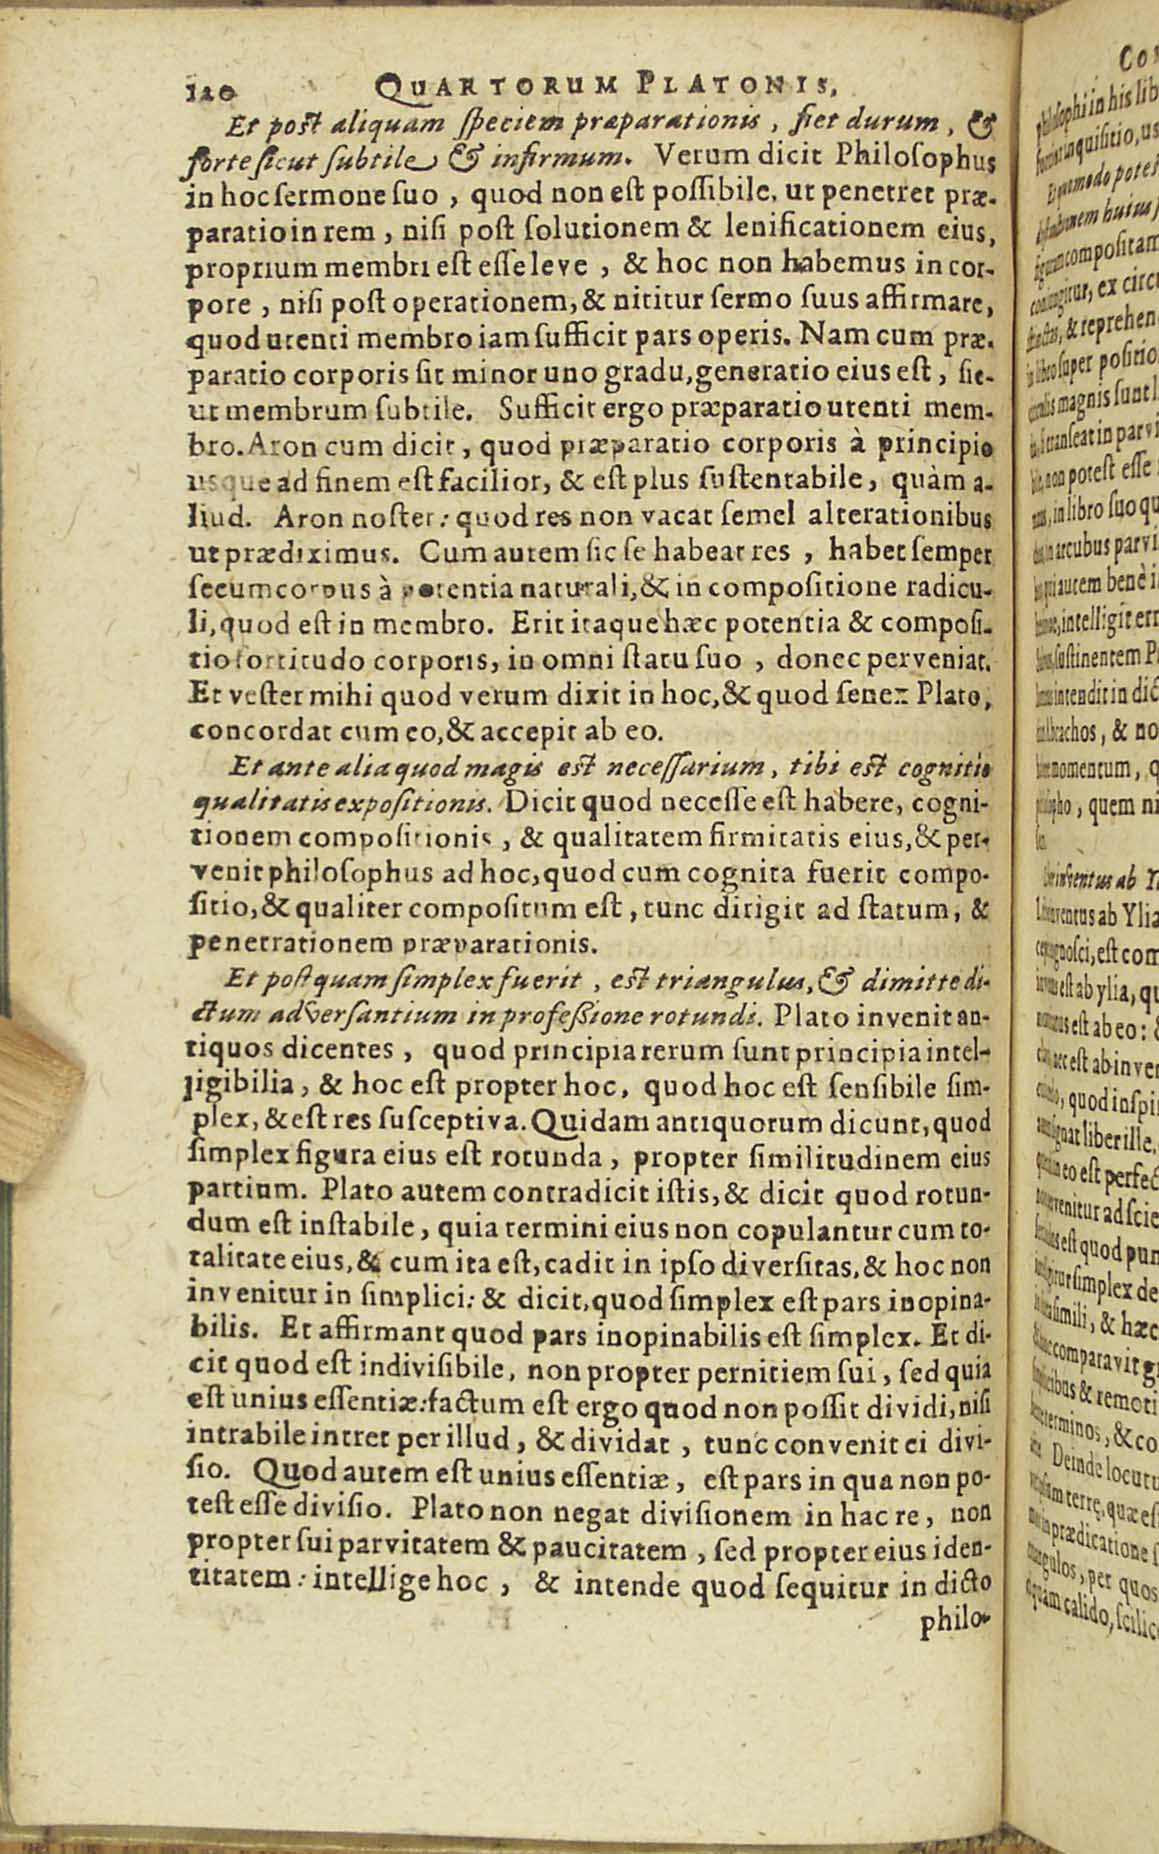 120 QUARTORUM PLATONIS,
Et post aliquam speciem præparationis, fiet durum, &
forte sicut subtile & infirmum. Verum dicit Philosophus
in hoc sermone suo, quod non est possibile, ut penetret præ-
paratio in rem, nisi post solutionem & lenificationem eius,
proprium membri est esse leve, & hoc non habemus in cor-
pore, nisi post operationem, & nititur sermo suus affirmare,
quod utenti membro iam sufficit pars operis. Nam cum præ-
paratio corporis sit minor uno gradu, generatio eius est, sic-
ut membrum subtile. Sufficit ergo præparatio utenti mem-
bro. Aron cum dicit, quod præparatio corporis à principio
usque ad finem est facilior, & est plus sustentabile, quàm a-
liud. Aron noster: quod res non vacat semel alterationibus
ut prædiximus. Cum autem sic se habeat res, habet semper
secum corpus à potentia naturali, & in compositione radicu-
li, quod est in membro. Erit itaque hæc potentia & composi-
tio fortitudo corporis, in omni statu suo, donec perveniat.
Et vester mihi quod verum dixit in hoc, & quod senex Plato,
concordat cum eo, & accepit ab eo.
Et ante alia quod magis est necessarium, tibi est cognitio
qualitatis expositionis. Dicit quod necesse est habere, cogni-
tionem compositionis, & qualitatem firmitatis eius, & per-
venit philosophus ad hoc, quod cum cognita fuerit compo-
sitio, & qualiter compositum est, tunc dirigit ad statum, &
penetrationem præparationis.
Et postquam simplex fuerit, est triangulus, & dimitte di-
ctum adversantium in professione rotundi. Plato invenit an-
tiquos dicentes, quod principia rerum sunt principia intel-
ligibilia, & hoc est propter hoc, quod hoc est sensibile sim-
plex, & est res susceptiva. Quidam antiquorum dicunt, quod
simplex figura eius est rotunda, propter similitudinem eius
partium. Plato autem contradicit istis, & dicit quod rotun-
dum est instabile, quia termini eius non copulantur cum to-
talitate eius, & cum ita est, cadit in ipso diversitas, & hoc non
invenitur in simplici: & dicit, quod simplex est pars inopina-
bilis. Et affirmant quod pars inopinabilis est simplex. Et di-
cit quod est indivisibile, non propter pernitiem sui, sed quia
est unius essentiæ: factum est ergo quod non possit dividi, nisi
intrabile intret per illud, & dividat, tunc convenit ei divi-
sio. Quod autem est unius essentiæ, est pars in qua non po-
test esse divisio. Plato non negat divisionem in hac re, non
propter sui parvitatem & paucitatem, sed propter eius iden-
titatem: intellige hoc, & intende quod sequitur in dicto
philo-